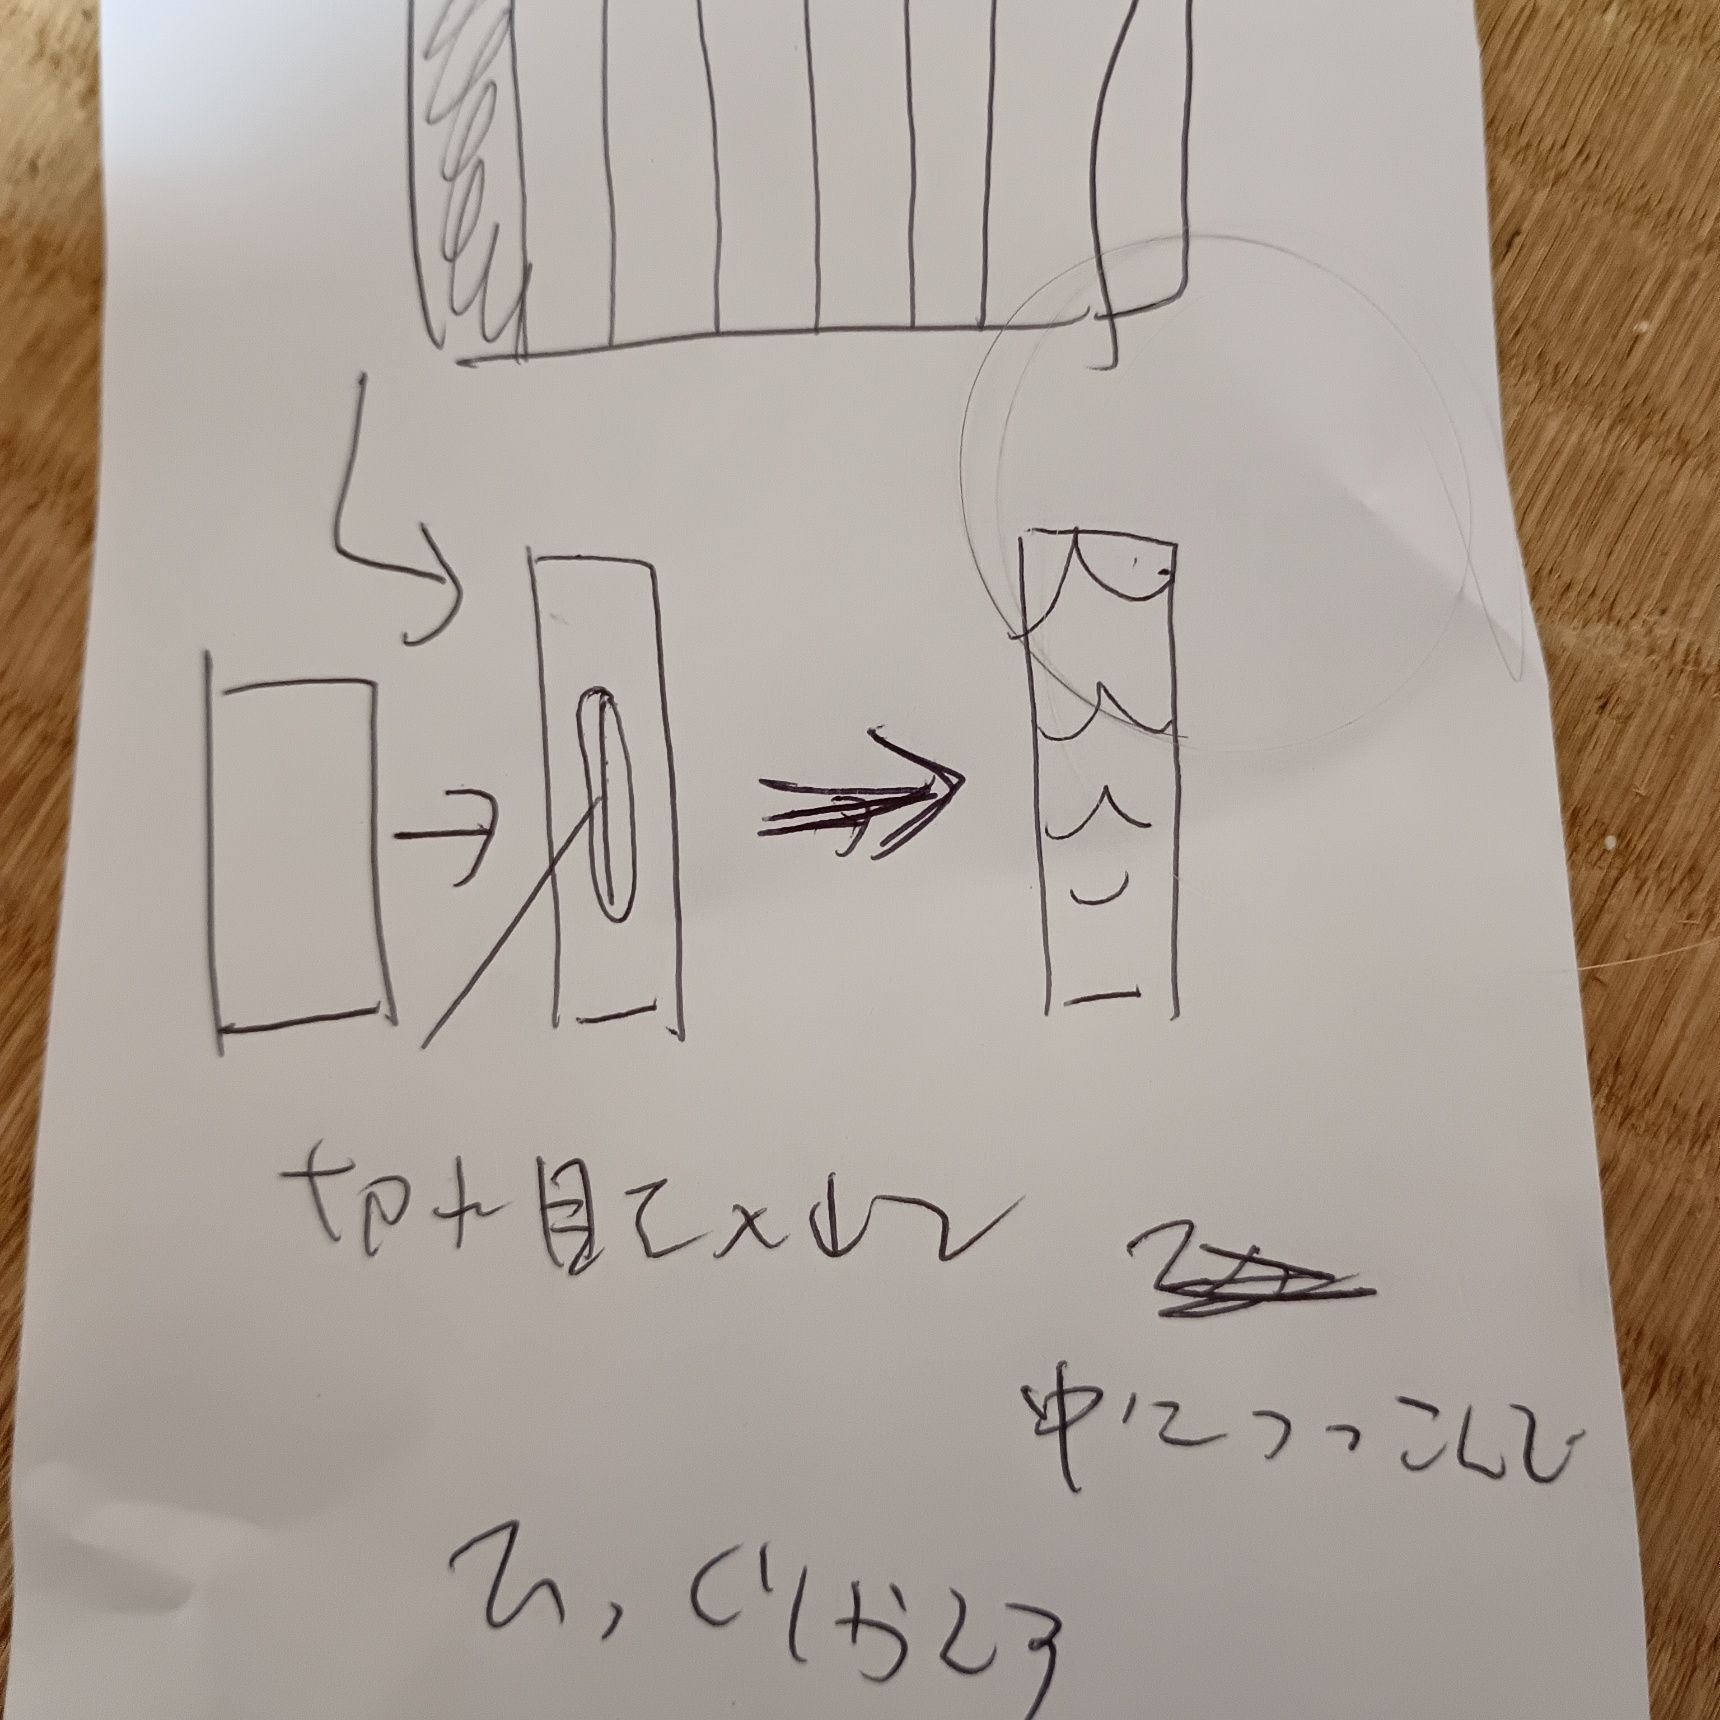 切れ目を入れて
中につっこんで
ひっくりかえす